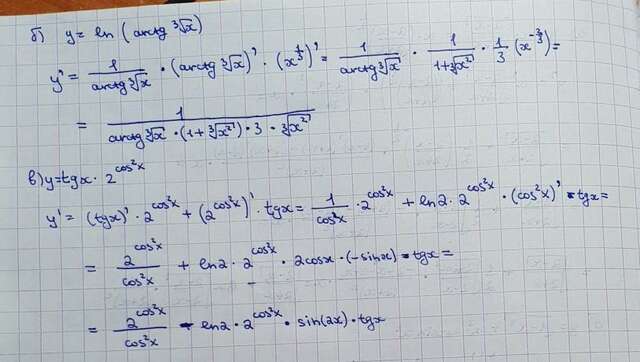 б) y = ln (arctg ∛x)
y' = 1/(arctg ∛x) · (arctg ∛x)' · (x^(1/3))' = 1/(arctg ∛x) · 1/(1+∛x²) · 1/3 (x^(-2/3)) =
= 1/(arctg ∛x · (1+∛x²) · 3 · ∛x²)
в) y = tgx · 2^(cos²x)
y' = (tgx)' · 2^(cos²x) + (2^(cos²x))' · tgx = 1/(cos²x) · 2^(cos²x) + ln2 · 2^(cos²x) · (cos²x)' · tgx =
= 2^(cos²x)/(cos²x) + ln2 · 2^(cos²x) · 2cosx · (-sinx) · tgx =
= 2^(cos²x)/(cos²x) - ln2 · 2^(cos²x) · sin(2x) · tgx